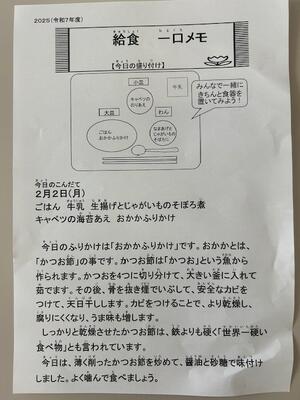 2025(令和7年度)
給食 一口メモ
【今日の盛り付け】
小皿
キャベツの
のりあえ
牛乳
みんなで一緒に
きちんと食器を
置いてみよう!
大皿
わん
ごはん
おかかふりかけ
なまあげと
じゃがいもの
そぼろに
今日のこんだて
2月2日(月)
ごはん 牛乳 生揚げとじゃがいものそぼろ煮
キャベツの海苔あえ おかかふりかけ
今日のふりかけは「おかかふりかけ」です。おかかとは、
「かつお節」の事です。かつお節は「かつお」という魚から
作られます。かつおを4つに切り分けて、大きい釜に入れて
茹でます。その後、骨を抜き煙でいぶして、安全なカビを
つけて、天日干しします。カビをつけることで、より乾燥し、
腐りにくくなり、うま味も増します。
しっかりと乾燥させたかつお節は、鉄よりも硬く「世界一硬い
食べ物」とも言われています。
今日は、薄く削ったかつお節を炒めて、醤油と砂糖で味付け
しました。よく噛んで食べましょう。